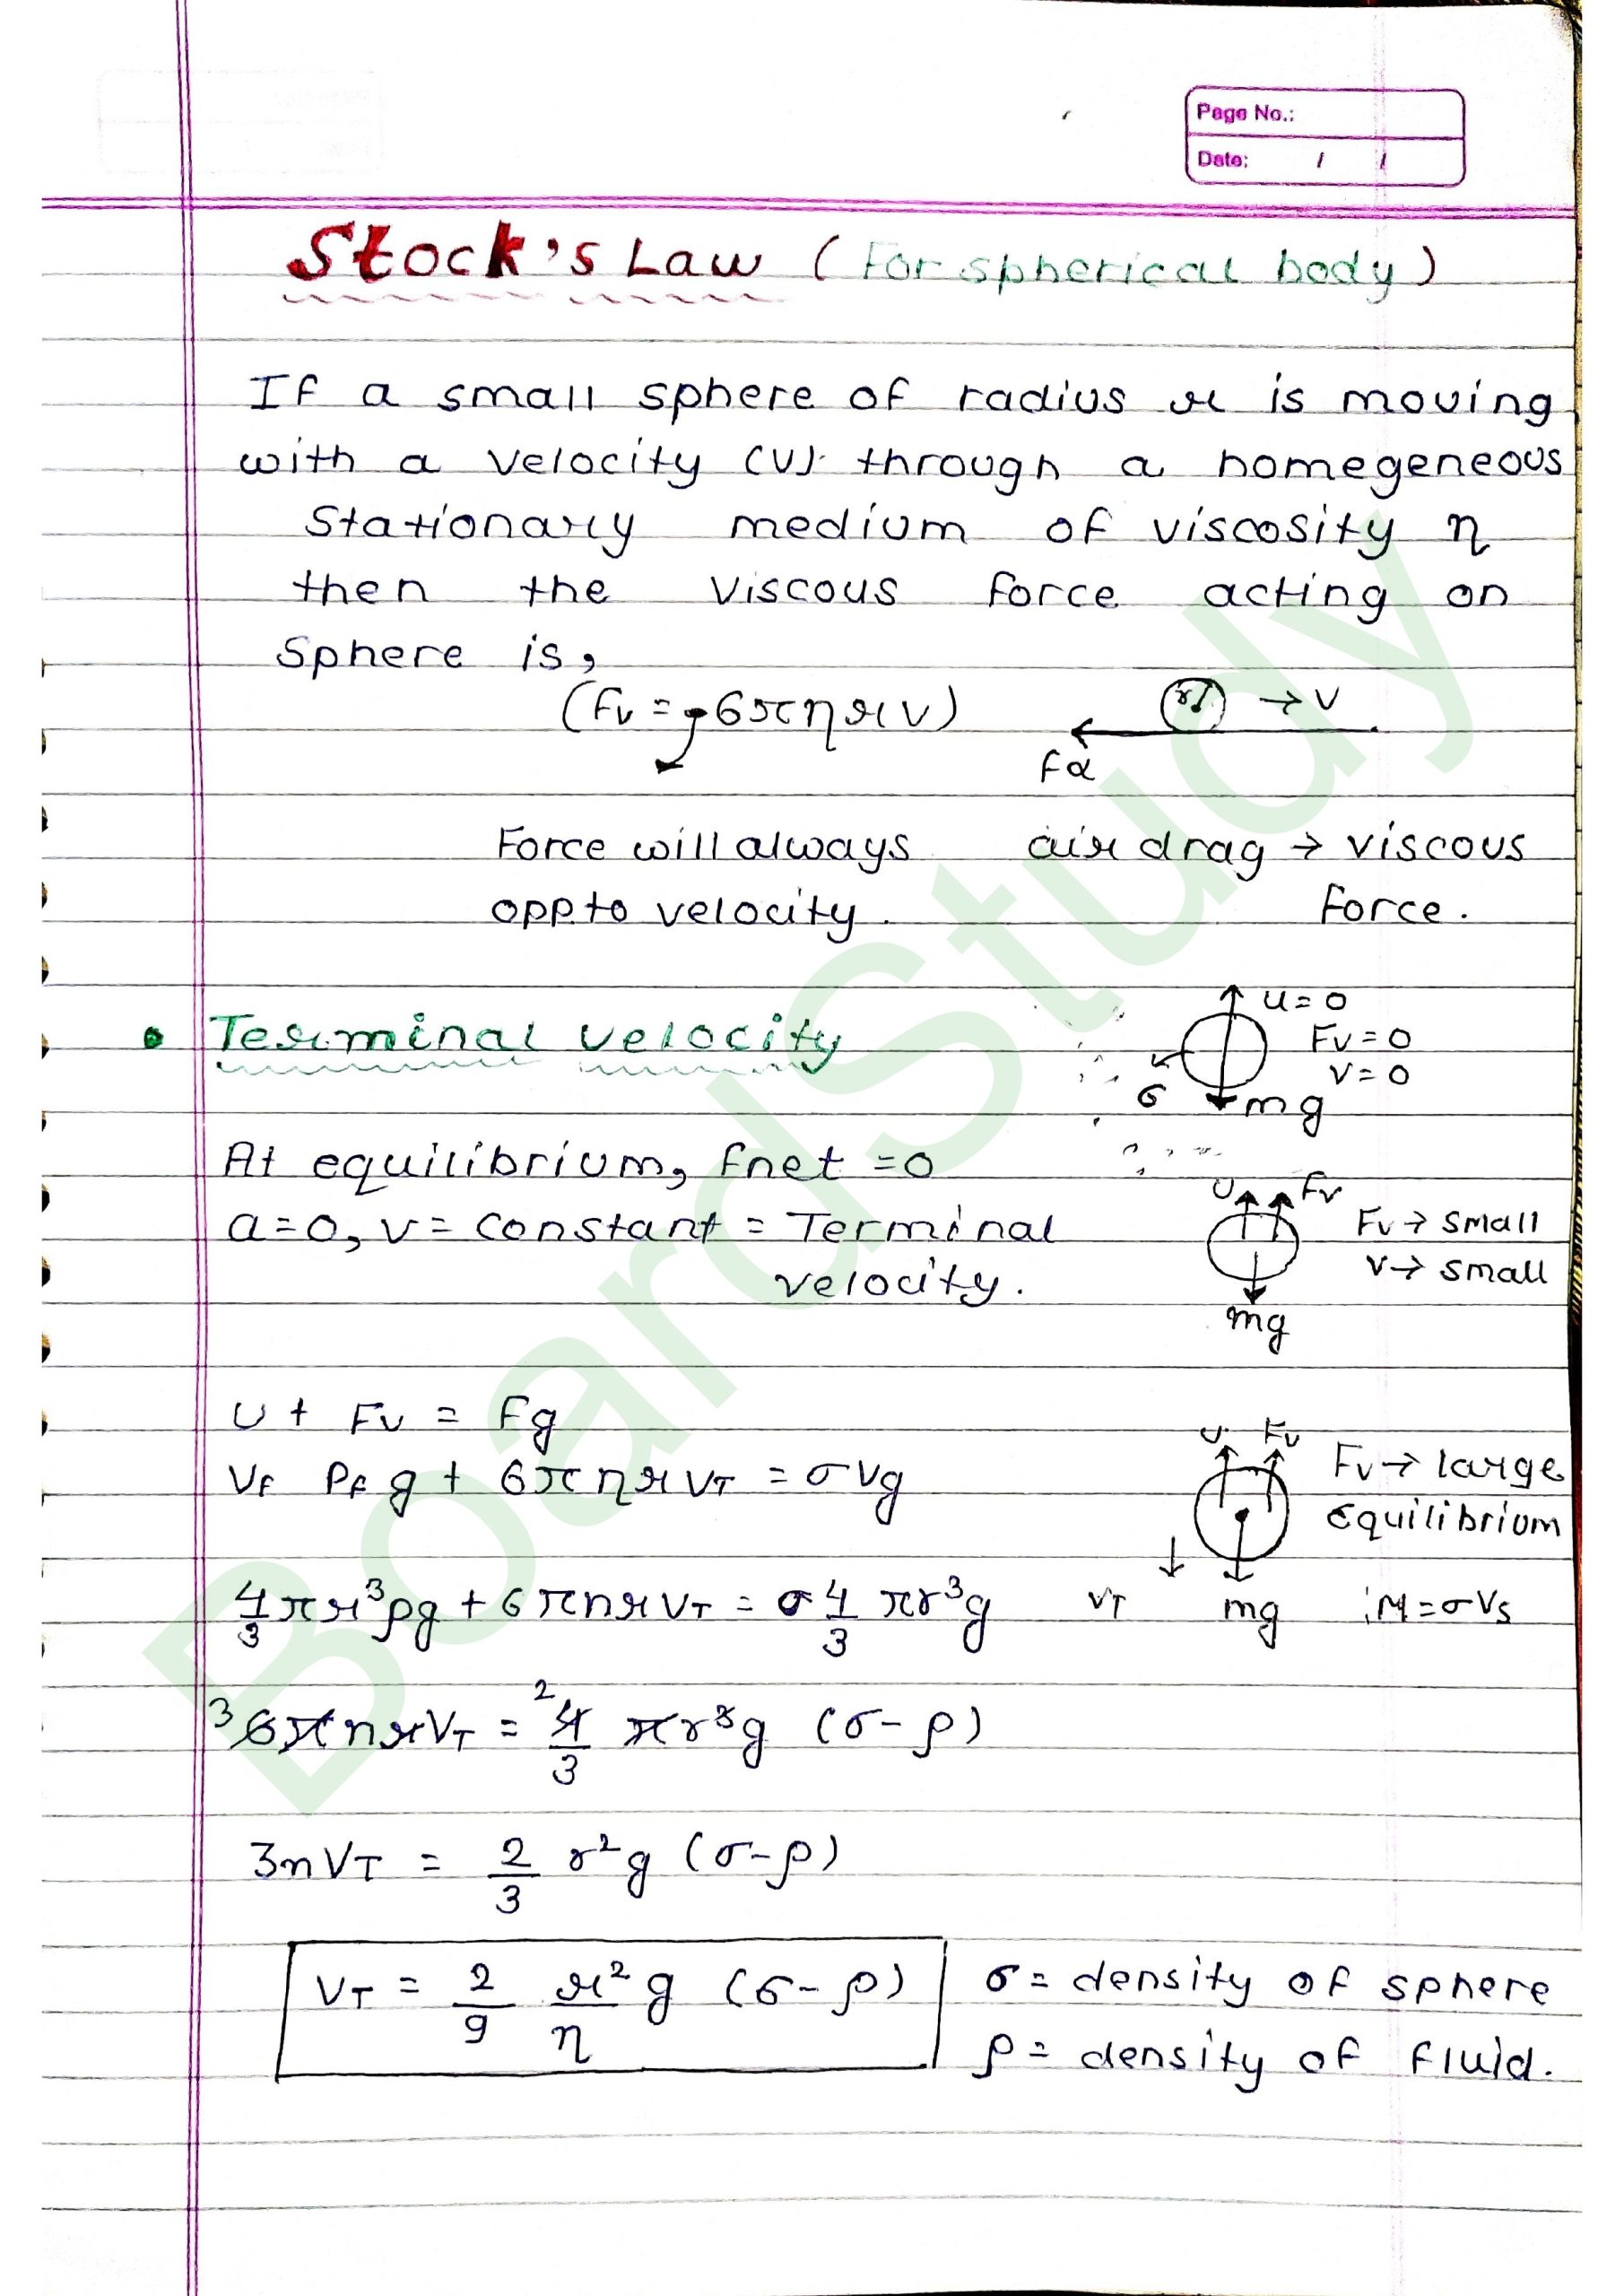 Page No.:
Date: / /
Stock's Law (For spherical body)
If a small sphere of radius r is moving
with a velocity (v) through a homegeneous
Stationary medium of viscosity η
then the viscous force acting on
Sphere is,
(Fv = -6πηr(v)
r → v
Fd
Force will always
opp. to velocity.
air drag → viscous
Force.
• Terminal velocity
u = 0
Fv = 0
v = 0
σ mg
At equilibrium, fnet = 0
a = 0, v = constant = Terminal
velocity.
U Fv
Fv → small
v → small
mg
U + Fv = Fg
Vf ρf g + 6πηr VT = σVg
U Fv
Fv → large
equilibrium
4/3 πr³ρg + 6πnr VT = σ 4/3 πr³g
VT mg M = σVs
3 6πnrVT = 2 4/3 πr³g (σ - ρ)
3nVT = 2/3 r²g (σ - ρ)
VT = 2/9 r²/η g (σ - ρ)
σ = density of sphere
ρ = density of fluid.
BoardStudy